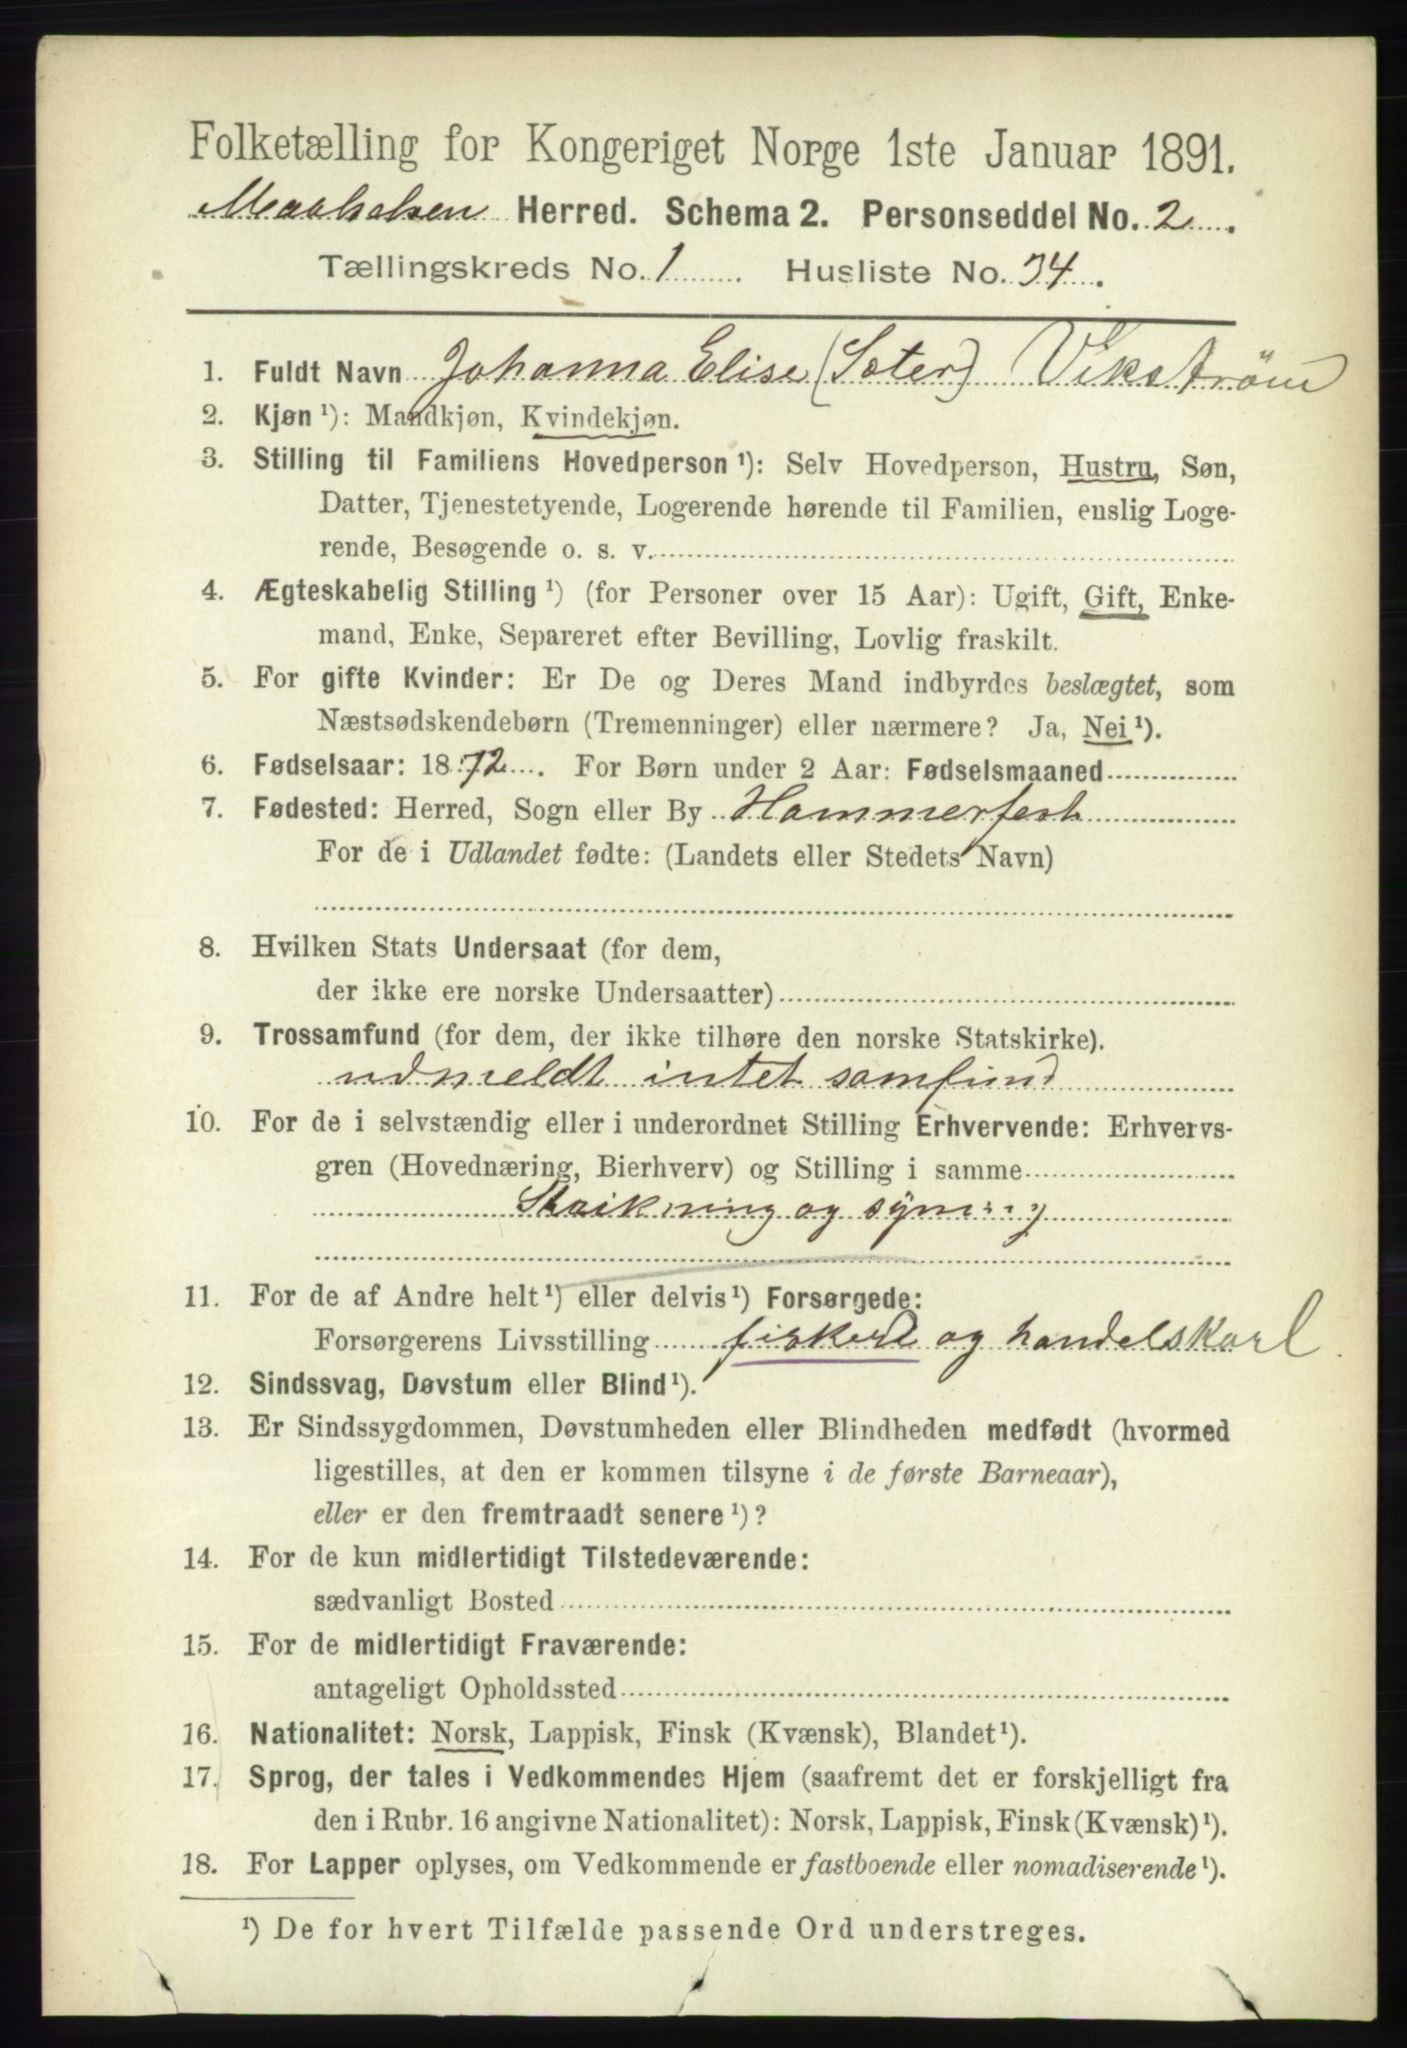 Folketælling for Kongeriget Norge 1ste Januar 1891.
Maalselven Herred. Schema 2. Personseddel No. 2.
Tællingskreds No. 1. Husliste No. 34.
1. Fuldt Navn Johanna Elise (Soter) Vikström
2. Kjøn ¹): Mandkjøn, Kvindekjøn.
3. Stilling til Familiens Hovedperson ¹): Selv Hovedperson, Hustru, Søn,
Datter, Tjenestetyende, Logerende hørende til Familien, enslig Loge-
rende, Besøgende o. s. v.
4. Ægteskabelig Stilling ¹) (for Personer over 15 Aar): Ugift, Gift, Enke-
mand, Enke, Separeret efter Bevilling, Lovlig fraskilt.
5. For gifte Kvinder: Er De og Deres Mand indbyrdes beslægtet, som
Næstsødskendebørn (Tremenninger) eller nærmere? Ja, Nei ¹).
6. Fødselsaar: 1872. For Børn under 2 Aar: Fødselsmaaned
7. Fødested: Herred, Sogn eller By Hammerfest
For de i Udlandet fødte: (Landets eller Stedets Navn)
8. Hvilken Stats Undersaat (for dem,
der ikke ere norske Undersaatter)
9. Trossamfund (for dem, der ikke tilhøre den norske Statskirke).
udmeldt intet samfund
10. For de i selvstændig eller i underordnet Stilling Erhvervende: Erhvervs-
gren (Hovednæring, Bierhverv) og Stilling i samme
og syning
11. For de af Andre helt ¹) eller delvis ¹) Forsørgede:
Forsørgerens Livsstilling og handelskarl
12. Sindssvag, Døvstum eller Blind ¹).
13. Er Sindssygdommen, Døvstumheden eller Blindheden medfødt (hvormed
ligestilles, at den er kommen tilsyne i de første Barneaar),
eller er den fremtraadt senere ¹)?
14. For de kun midlertidigt Tilstedeværende:
sædvanligt Bosted
15. For de midlertidigt Fraværende:
antageligt Opholdssted
16. Nationalitet: Norsk, Lappisk, Finsk (Kvænsk), Blandet ¹).
17. Sprog, der tales i Vedkommendes Hjem (saafremt det er forskjelligt fra
den i Rubr. 16 angivne Nationalitet): Norsk, Lappisk, Finsk (Kvænsk) ¹).
18. For Lapper oplyses, om Vedkommende er fastboende eller nomadiserende ¹).
¹) De for hvert Tilfælde passende Ord understreges.